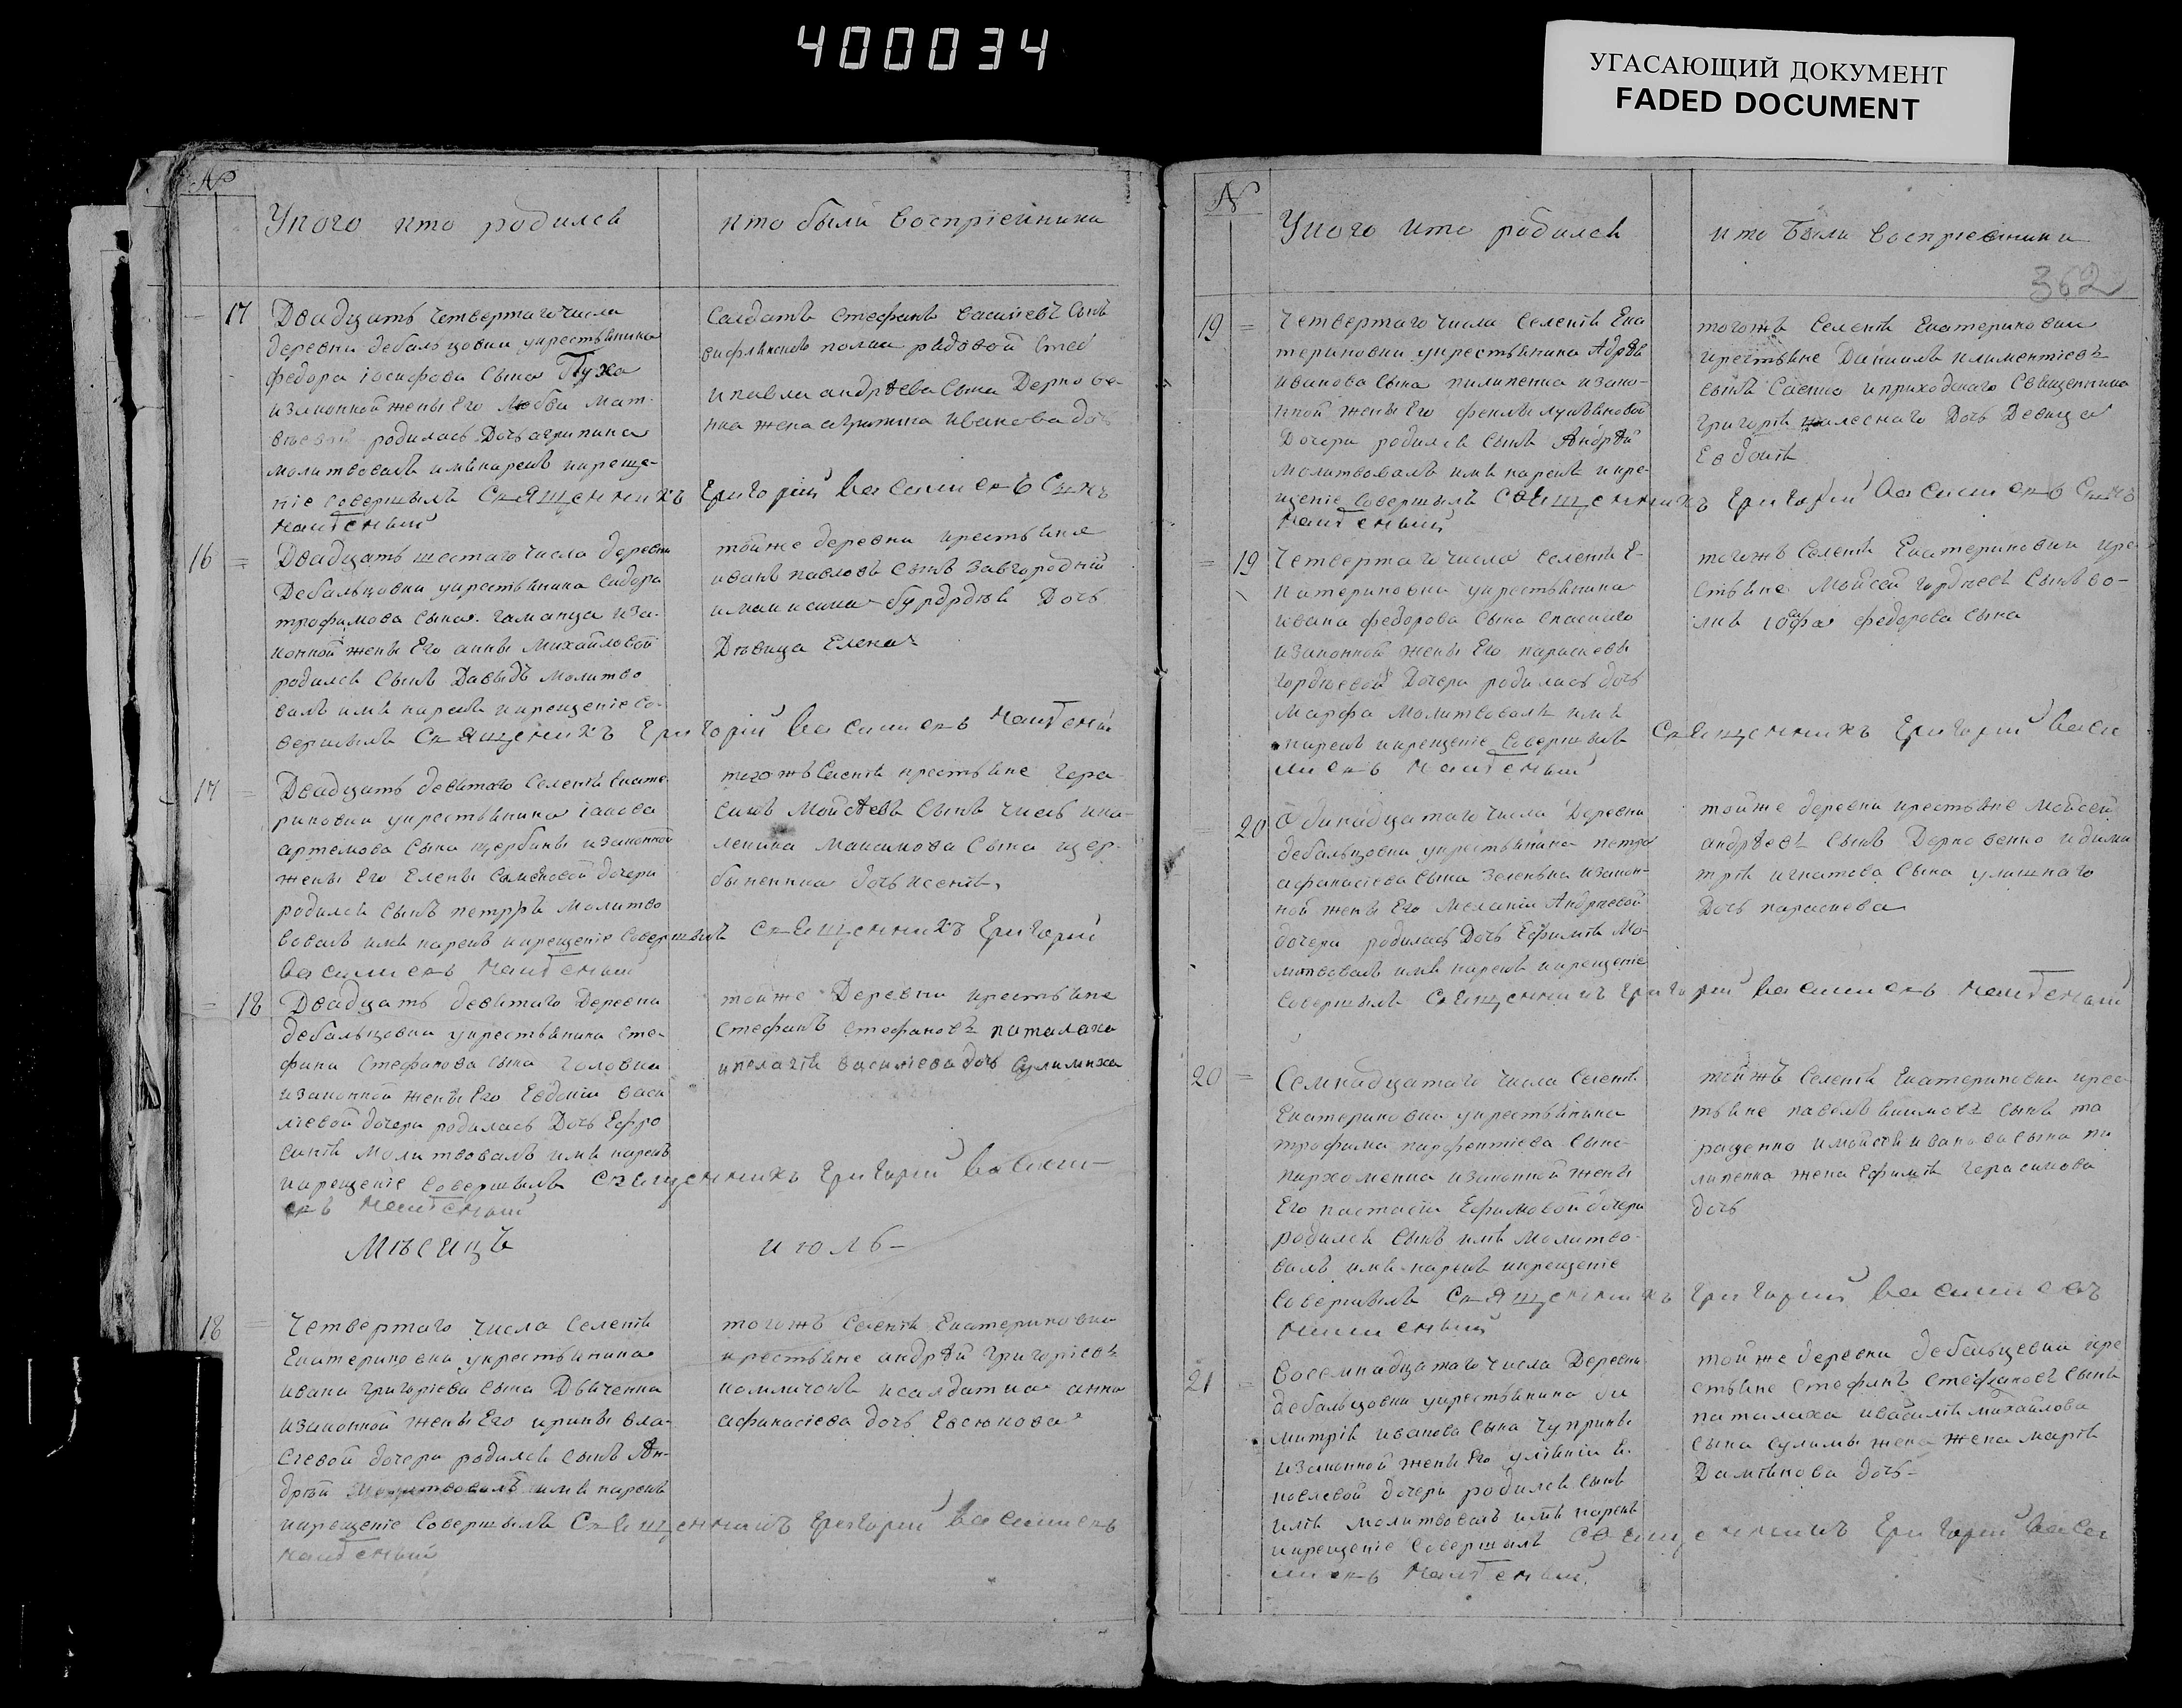 400034
УГАСАЮЩИЙ ДОКУМЕНТ
FADED DOCUMENT
№
Укого кто родился
кто были восприемники
17
Двадцать четвертаго числа
деревни дебальцовки укрестьянина
федора іосифова сына Пуха
изаконной жены Его Любви Мат-
родилась Дочь агрипина
молитвовалъ имя нарекъ икреще-
ніе совершилъ Священникъ
Солдатъ стефанъ василіевъ сынъ
полка рядовой
ипавла андрѣева сына Дерпове-
нка жена агрипина иванова доч
Григорій Василиевъ Сынъ
16
Двадцать шестаго числа деревни
Дебальцовки укрестьянина сидора
трофимова сына гаманца иза-
конной жены Его анны Михайловой
родился сынъ Давыдъ молитво
валъ имя нарекъ икрещеніе со-
вершилъ Священникъ Григорій Василиевъ
тойже деревни крестьяне
иванъ павловъ сынъ Завгородній
Дочь
Дѣвица Елена
17
Двадцать девятаго селенія екате-
риновки укрестьянина іакова
артемова сына щербины изаконной
жены Его Елены Семеновой дочери
родился сынъ петръ молитво
вовалъ имя нарекъ икрещеніе совершилъ Священникъ Григорій
Василиевъ
тогожъ селенія крестьяне гера-
симъ Мойсѣевъ сынъ
максимова сына щер-
быненка дочь ксенія
18
Двадцать девятаго Деревни
дебальцовки укрестьянина сте-
фана стефанова сына головка
изаконной жены Его Евдокіи васи
ліевой дочери родилась Дочь Ефро
синія молитвовалъ имя нарекъ
икрещеніе совершилъ Священникъ Григорій Васили-
евъ
тойже Деревни крестьяне
Стефанъ стефановъ паталаха
ипелагія василіева дочь сулимиха
Мѣсяцъ
июль
18
Четвертаго числа селенія
Екатериновки укрестьянина
ивана григоріева сына Дьяченка
изаконной жены Его ирины вла-
сіевой дочери родился сынъ Ан-
дрѣй молитвовалъ имя нарекъ
икрещеніе совершилъ Священникъ Григорій Василиевъ
тогожъ селенія Екатериновки
крестьяне андрѣй григоріевъ
исалдатка анна
афанасіева дочь Евсюкова
№
Укого кто родился
кто были восприемники
362
19
Четвертаго числа селенія Ека
териновки укрестьянина Андрѣя
иванова сына пилипенка изако-
нной жены Его феклы лукьяновой
Дочери родился сынъ Андрѣй
молитвовалъ имя нарекъ икре-
щеніе совершилъ Священникъ Григорій Василиевъ Сынъ
тогожъ селенія Екатериновки
крестьяне Даніилъ климентіевъ
сынъ Саенко иприходскаго священника
григорія Дочь Девица
Евдокія
19
Четвертаго числа селенія Е-
катериновки укрестьянина
ивана федорова сына
изаконной жены Его параскевы
гордѣевой Дочери родилась дочь
Марфа молитвовалъ имя
нарекъ икрещеніе совершилъ Священникъ Григорій Васи
лиевъ
тогожъ селенія Екатериновки кре-
стьяне Мойсей гордѣевъ сынъ
федорова сына
20
Одинадцатаго числа Деревни
дебальцовки укрестьянина петра
афанасіева сына изакон-
ной жены Его Меланіи Андреевой
дочери родилась Дочь Ефимія мо-
литвовалъ имя нарекъ икрещеніе
совершилъ Священникъ Григорій Василиевъ
тойже деревни крестьяне Мойсей
андрѣевъ сынъ Дерновенко идими
трія игнатова сына
Дочь параскева
20
Семнадцатаго числа селенія
Екатериновки укрестьянина
трофима парфентіева сына
пархоменка изаконной жены
Его настасіи Ефимовой дочери
родился сынъ молитво-
валъ имя нарекъ икрещеніе
совершилъ Священникъ Григорій Василиевъ
тойжъ селенія Екатериновки крес
тьяне павелъ сынъ та
ращенко имойсія иванова сына пи
липенка жена Ефимія герасимова
дочь
21
Восемнадцатаго числа Деревни
дебальцовки укрестьянина ди
митрія иванова сына чуприны
изаконной жены Его
дочери родился сынъ
илія молитвовалъ имя нарекъ
икрещеніе совершилъ Священникъ Григорій Васи
лиевъ
тойже деревни дебальцовки кре
стьяне стефанъ стефановъ сынъ
паталаха ивасилія михайлова
сына сулимы жена жена марія
дочь